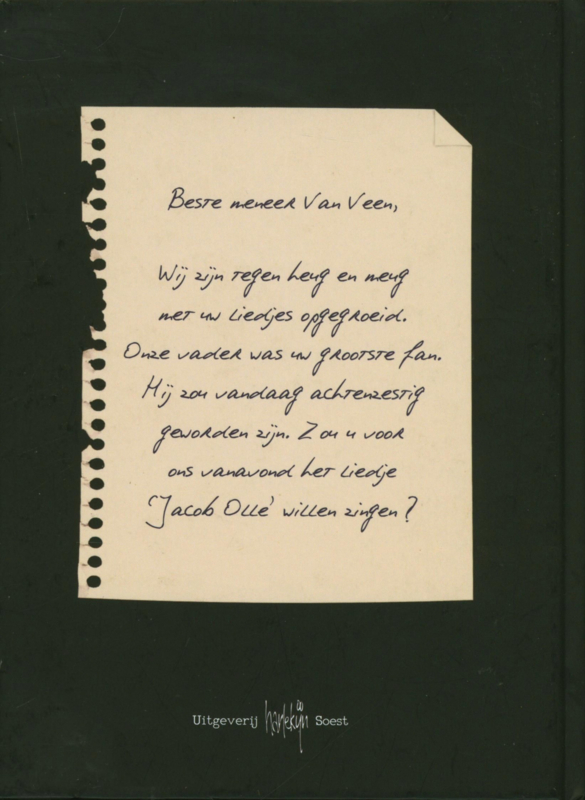 Beste meneer Van Veen,
Wij zijn tegen heug en meug
met uw liedjes opgegroeid.
Onze vader was uw grootste fan.
Hij zou vandaag achtenzestig
geworden zijn. Zou u voor
ons vanavond het liedje
'Jacob Ollé' willen zingen?
Uitgeverij harlekijn Soest